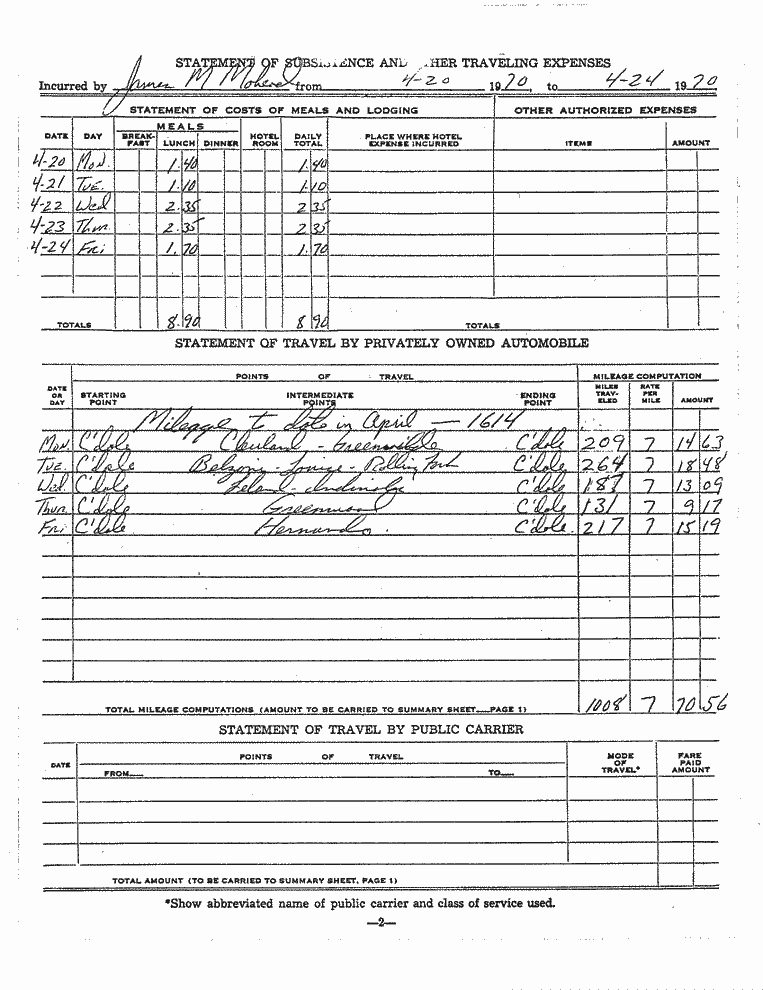 STATEMENT OF SUBSISTENCE AND HER TRAVELING EXPENSES
Incurred by James M Mohead from 4-20 1970, to 4-24 1970
STATEMENT OF COSTS OF MEALS AND LODGING OTHER AUTHORIZED EXPENSES
DATE DAY MEALS BREAK-FAST LUNCH DINNER HOTEL ROOM DAILY TOTAL PLACE WHERE HOTEL EXPENSE INCURRED ITEMS AMOUNT
4-20 Mon. 1.40 1.40
4-21 Tue. 1.10 1.10
4-22 Wed 2.35 2 35
4-23 Thur. 2.35 2 35
4-24 Fri 1.70 1.70
TOTALS 8.90 8 90 TOTALS
STATEMENT OF TRAVEL BY PRIVATELY OWNED AUTOMOBILE
POINTS OF TRAVEL MILEAGE COMPUTATION
DATE OR DAY STARTING POINT INTERMEDIATE POINTS ENDING POINT MILES TRAV-ELED RATE PER MILE AMOUNT
Mileage to date in April — 1614
Mon. C'dale Cleveland - Greenville C'dale 209 7 14 63
Tue. C'dale Belzoni - Louise - Rolling Fork C'dale 264 7 18 48
Wed. C'dale Leland - Indianola C'dale 187 7 13 09
Thur. C'dale Greenwood C'dale 131 7 9 17
Fri C'dale Hernando. C'dale. 217 7 15 19
TOTAL MILEAGE COMPUTATIONS (AMOUNT TO BE CARRIED TO SUMMARY SHEET—PAGE 1) 1008 7 70 56
STATEMENT OF TRAVEL BY PUBLIC CARRIER
DATE POINTS OF TRAVEL MODE OF TRAVEL* FARE PAID AMOUNT
FROM— TO—
TOTAL AMOUNT (TO BE CARRIED TO SUMMARY SHEET, PAGE 1)
*Show abbreviated name of public carrier and class of service used.
—2—